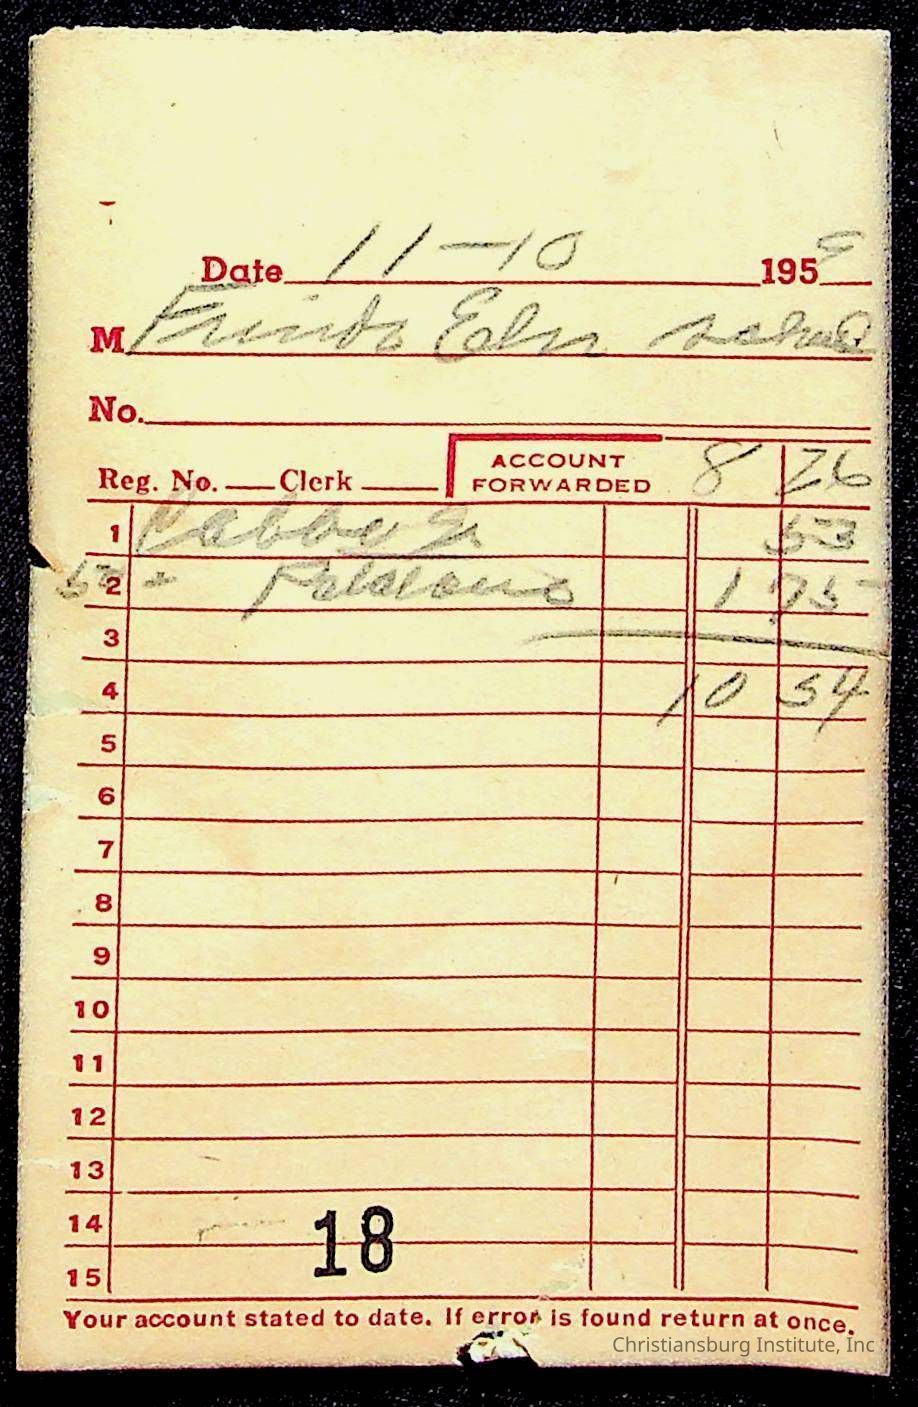 Date 11-10 1959
M Friends Elm School
No.
Reg. No. Clerk ACCOUNT FORWARDED 8 26
1 Cabbage 53
2 50# Potatoes 1 75
3
4 10 54
5
6
7
8
9
10
11
12
13
14
18
15
Your account stated to date. If error is found return at once.
Christiansburg Institute, Inc